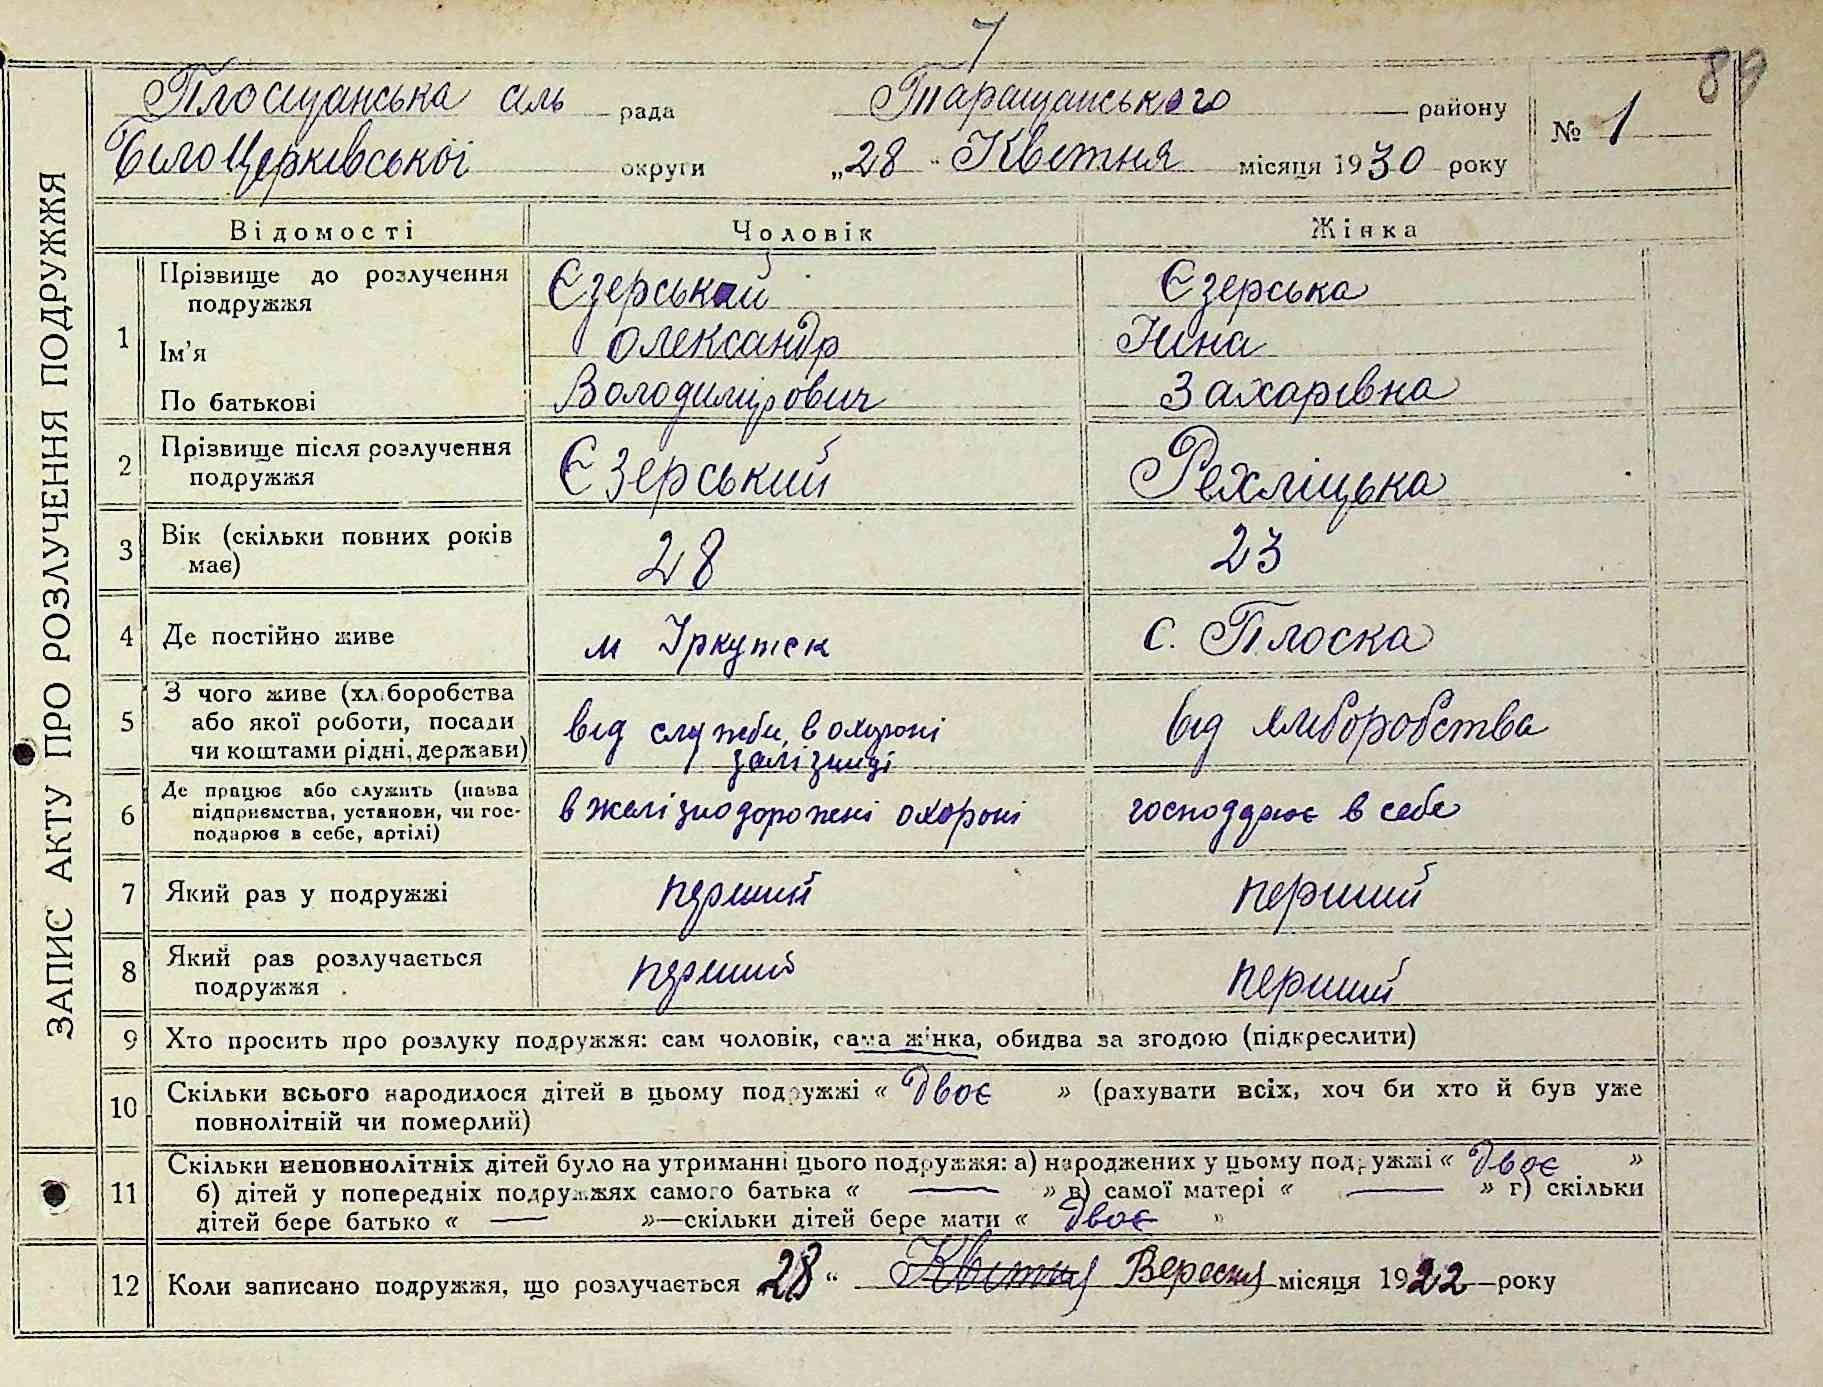 7
89
Плосщанська сіль рада Таращанського району № 1
Білоцерківської округи „28“ Квітня місяця 1930 року
ЗАПИС АКТУ ПРО РОЗЛУЧЕННЯ ПОДРУЖЖЯ
Відомості Чоловік Жінка
1 Прізвище до розлучення подружжя Єзерський Єзерська
Ім'я Олександр Ніна
По батькові Володимірович Захарівна
2 Прізвище після розлучення подружжя Єзерський Рехліцька
3 Вік (скільки повних років має) 28 23
4 Де постійно живе м Іркутск с. Плоска
5 З чого живе (хліборобства або якої роботи, посади чи коштами рідні, держави) від служби, в охороні залізниці від хліборобства
6 Де працює або служить (назва підприємства, установи, чи господарює в себе, артілі) в желізнодорожені охороні господдрює в себе
7 Який раз у подружжі перший перший
8 Який раз розлучається подружжя перший перший
9 Хто просить про розлуку подружжя: сам чоловік, сама жінка, обидва за згодою (підкреслити)
10 Скільки всього народилося дітей в цьому подружжі « Двоє » (рахувати всіх, хоч би хто й був уже
повнолітній чи померлий)
11 Скільки неповнолітніх дітей було на утриманні цього подружжя: а) народжених у цьому подружжі « Двоє »
б) дітей у попередніх подружжях самого батька « — » в) самої матері « — » г) скільки
дітей бере батько « — »—скільки дітей бере мати « Двоє »
12 Коли записано подружжя, що розлучається 28 “ Квітня Вересня місяця 1922 року